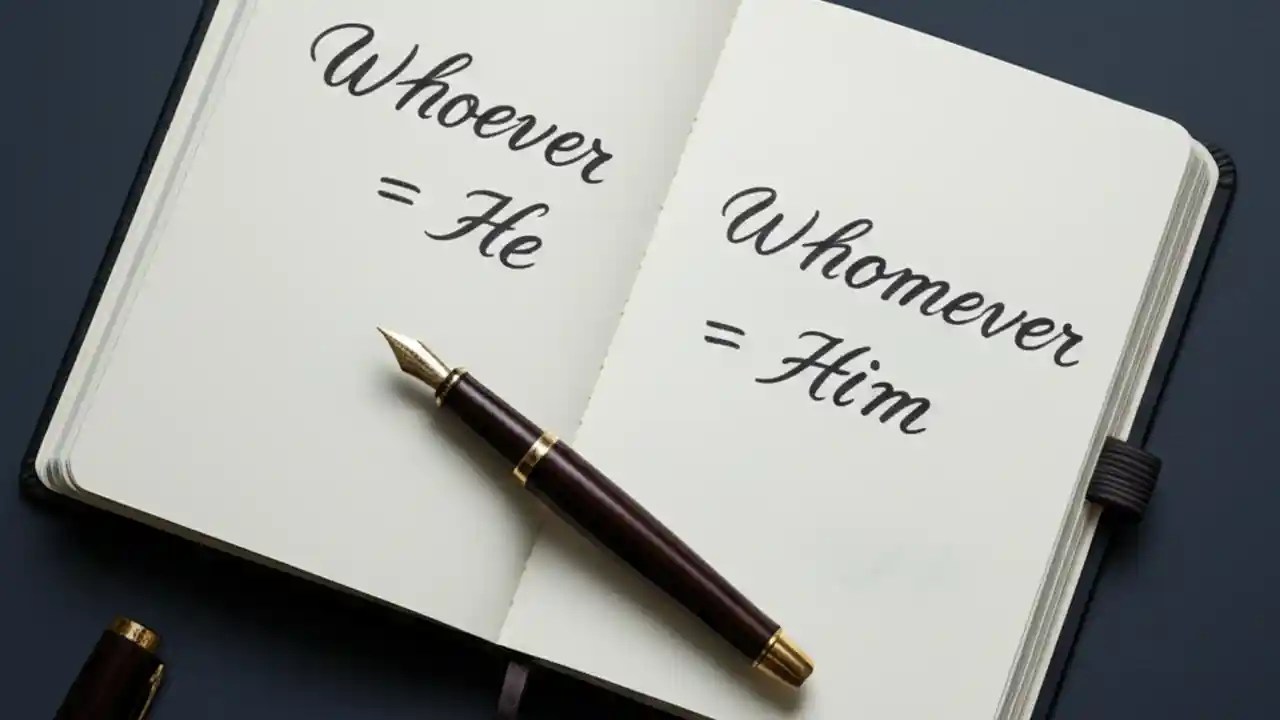 Whoever
= He
Whomever
= Him